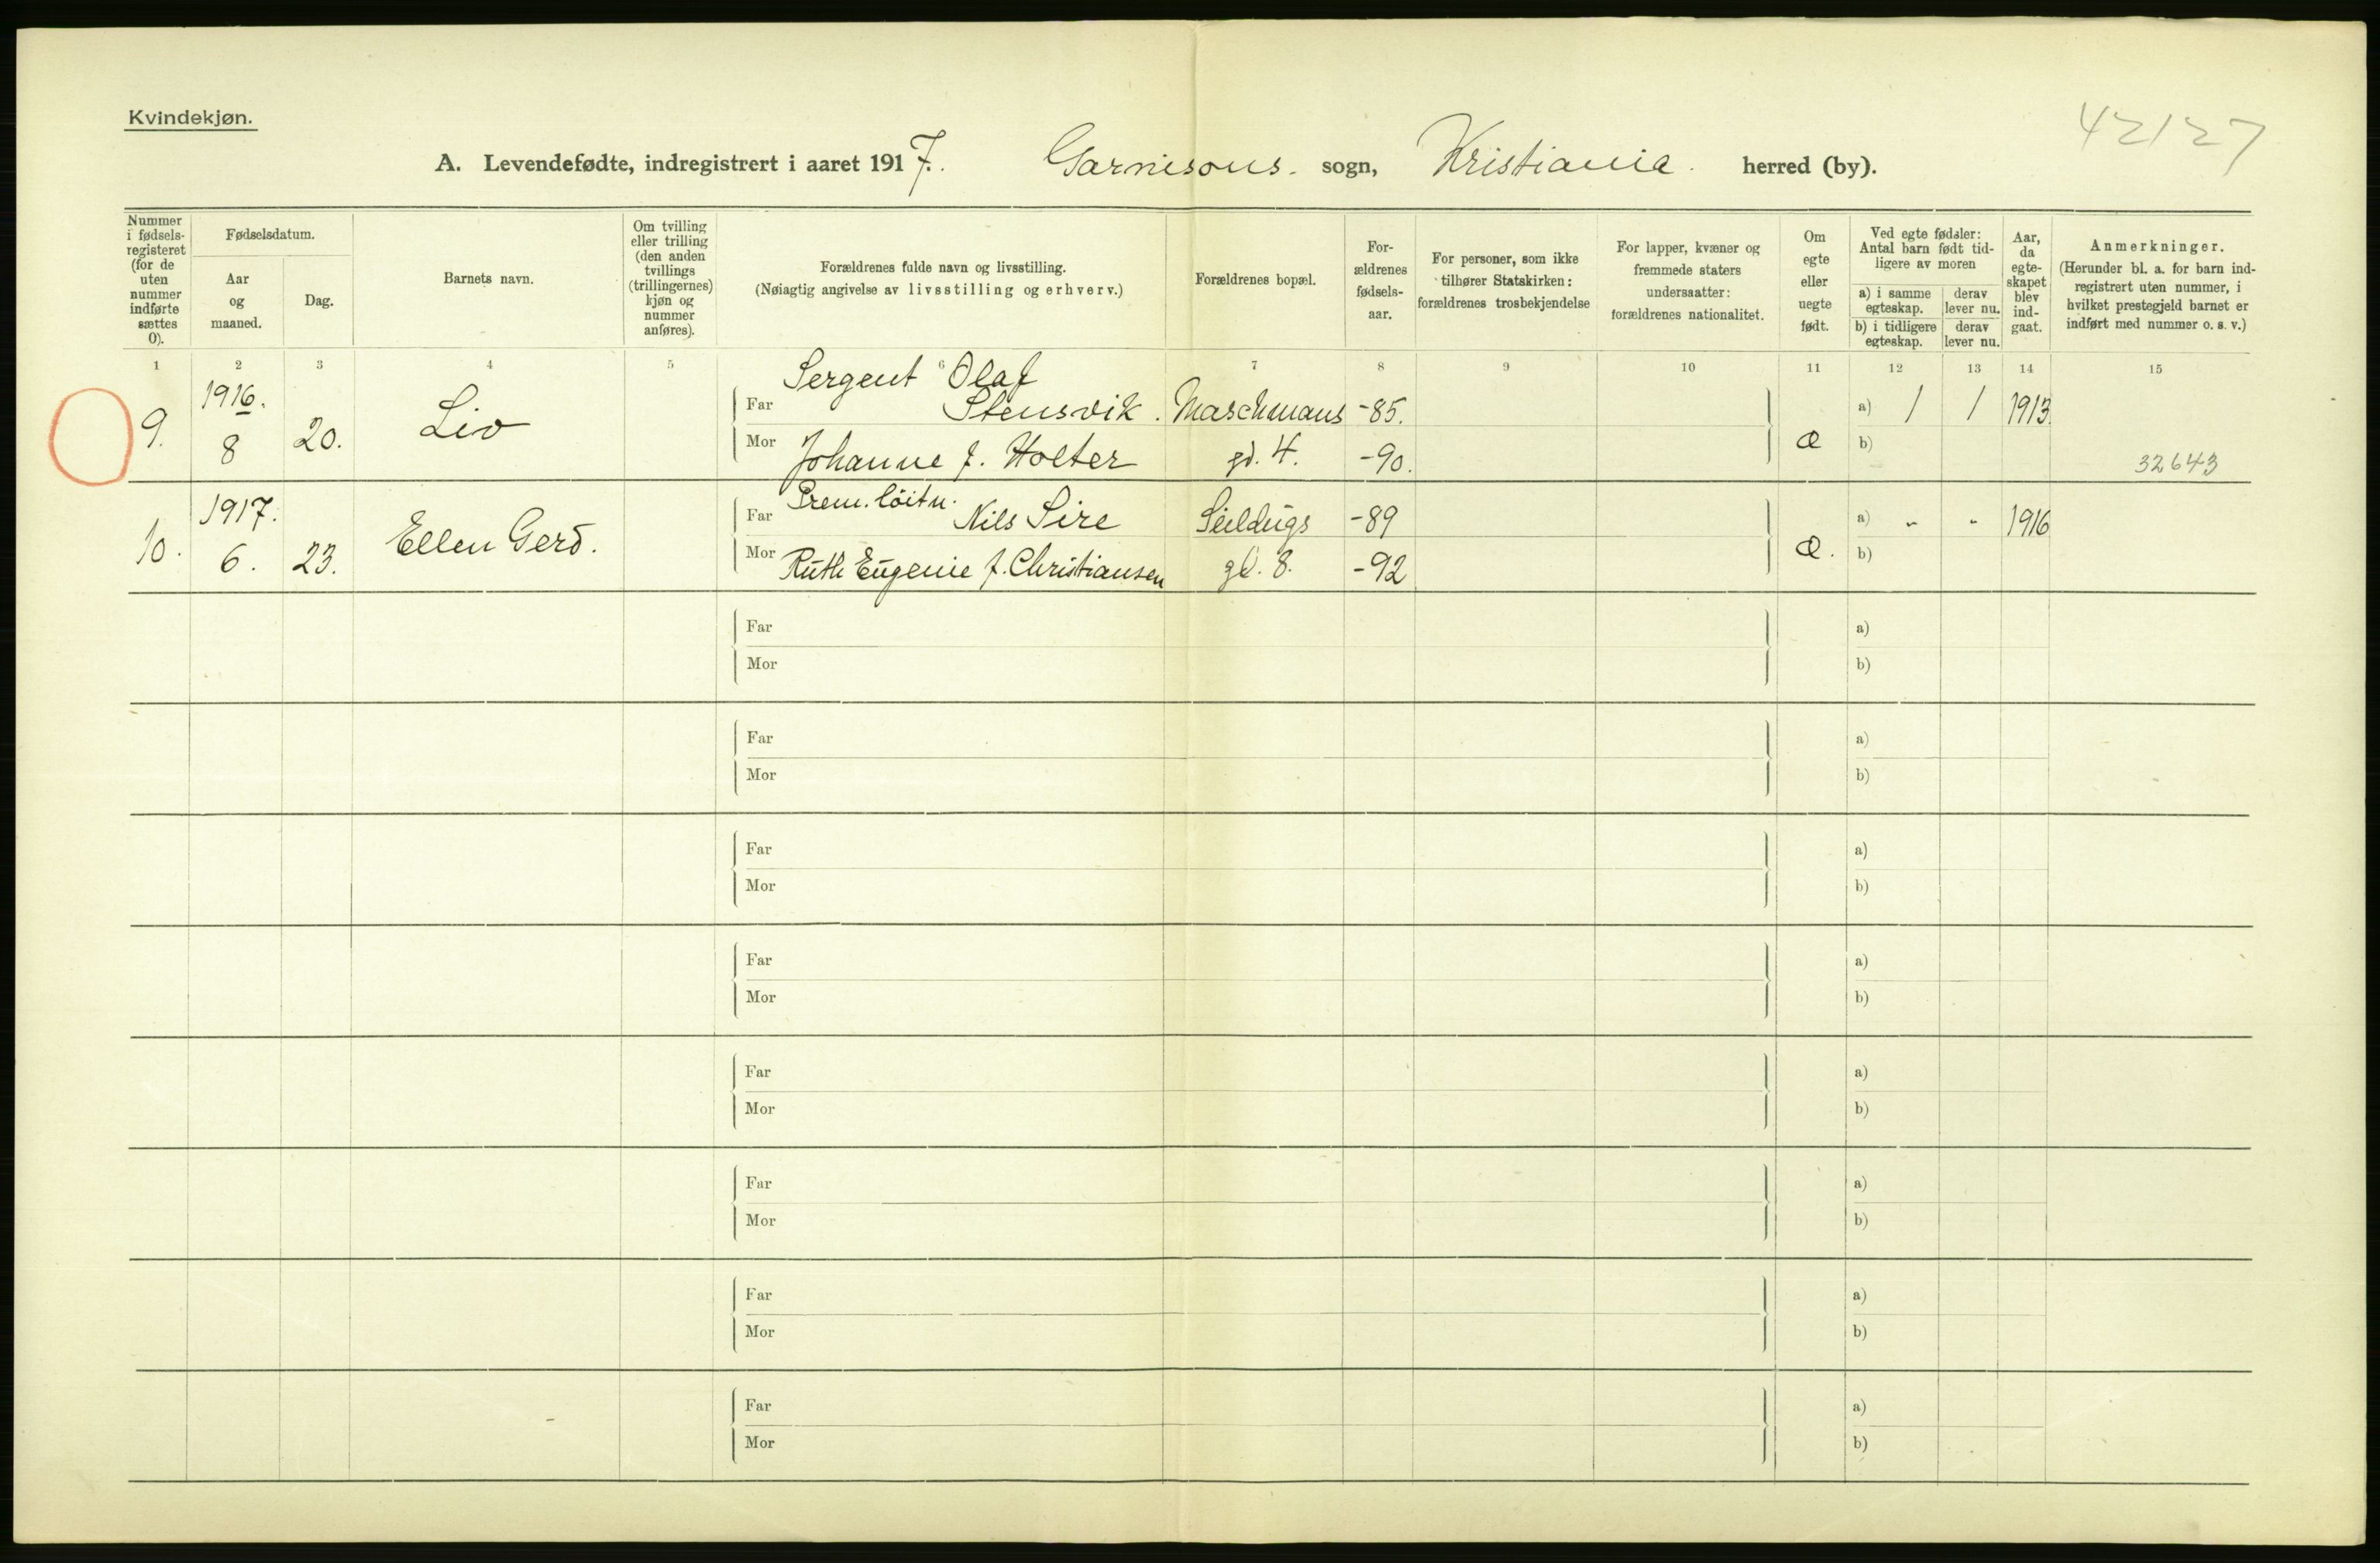 Kvindekjøn.
42127
A. Levendefødte, indregistrert i aaret 1917. Garnisons sogn, Kristiania herred (by).
Nummer i fødsels-registeret (for de uten nummer indførte sættes 0).
Fødselsdatum.
Aar og maaned.
Dag.
Barnets navn.
Om tvilling eller trilling (den anden tvillings (trillingernes) kjøn og nummer anføres).
Forældrenes fulde navn og livsstilling.
(Nøiagtig angivelse av livsstilling og erhverv.)
Forældrenes bopæl.
For-ældrenes fødsels-aar.
For personer, som ikke tilhører Statskirken: forældrenes trosbekjendelse
For lapper, kvæner og fremmede staters undersaatter: forældrenes nationalitet.
Om egte eller uegte født.
Ved egte fødsler: Antal barn født tid-ligere av moren
a) i samme egteskap.
derav lever nu.
b) i tidligere egteskap.
derav lever nu.
Aar, da egte-skapet blev ind-gaat.
Anmerkninger.
(Herunder bl. a. for barn ind-registrert uten nummer, i hvilket prestegjeld barnet er indført med nummer o. s. v.)
1 2 3 4 5 6 7 8 9 10 11 12 13 14 15
9. 1916. 8 20. Liv
Far Sergent Olaf Stensvik. Maschmans -85. a) 1 1 1913.
Mor Johanne f. Holter gd. 4. -90. Æ b) 32643
10. 1917. 6. 23. Ellen Gerd.
Far Prem. löitn. Nils Sire Seildugs -89 a) - - 1916
Mor Ruth Eugenie f. Christiansen gd. 8. -92 Æ. b)
Far a)
Mor b)
Far a)
Mor b)
Far a)
Mor b)
Far a)
Mor b)
Far a)
Mor b)
Far a)
Mor b)
Far a)
Mor b)
Far a)
Mor b)